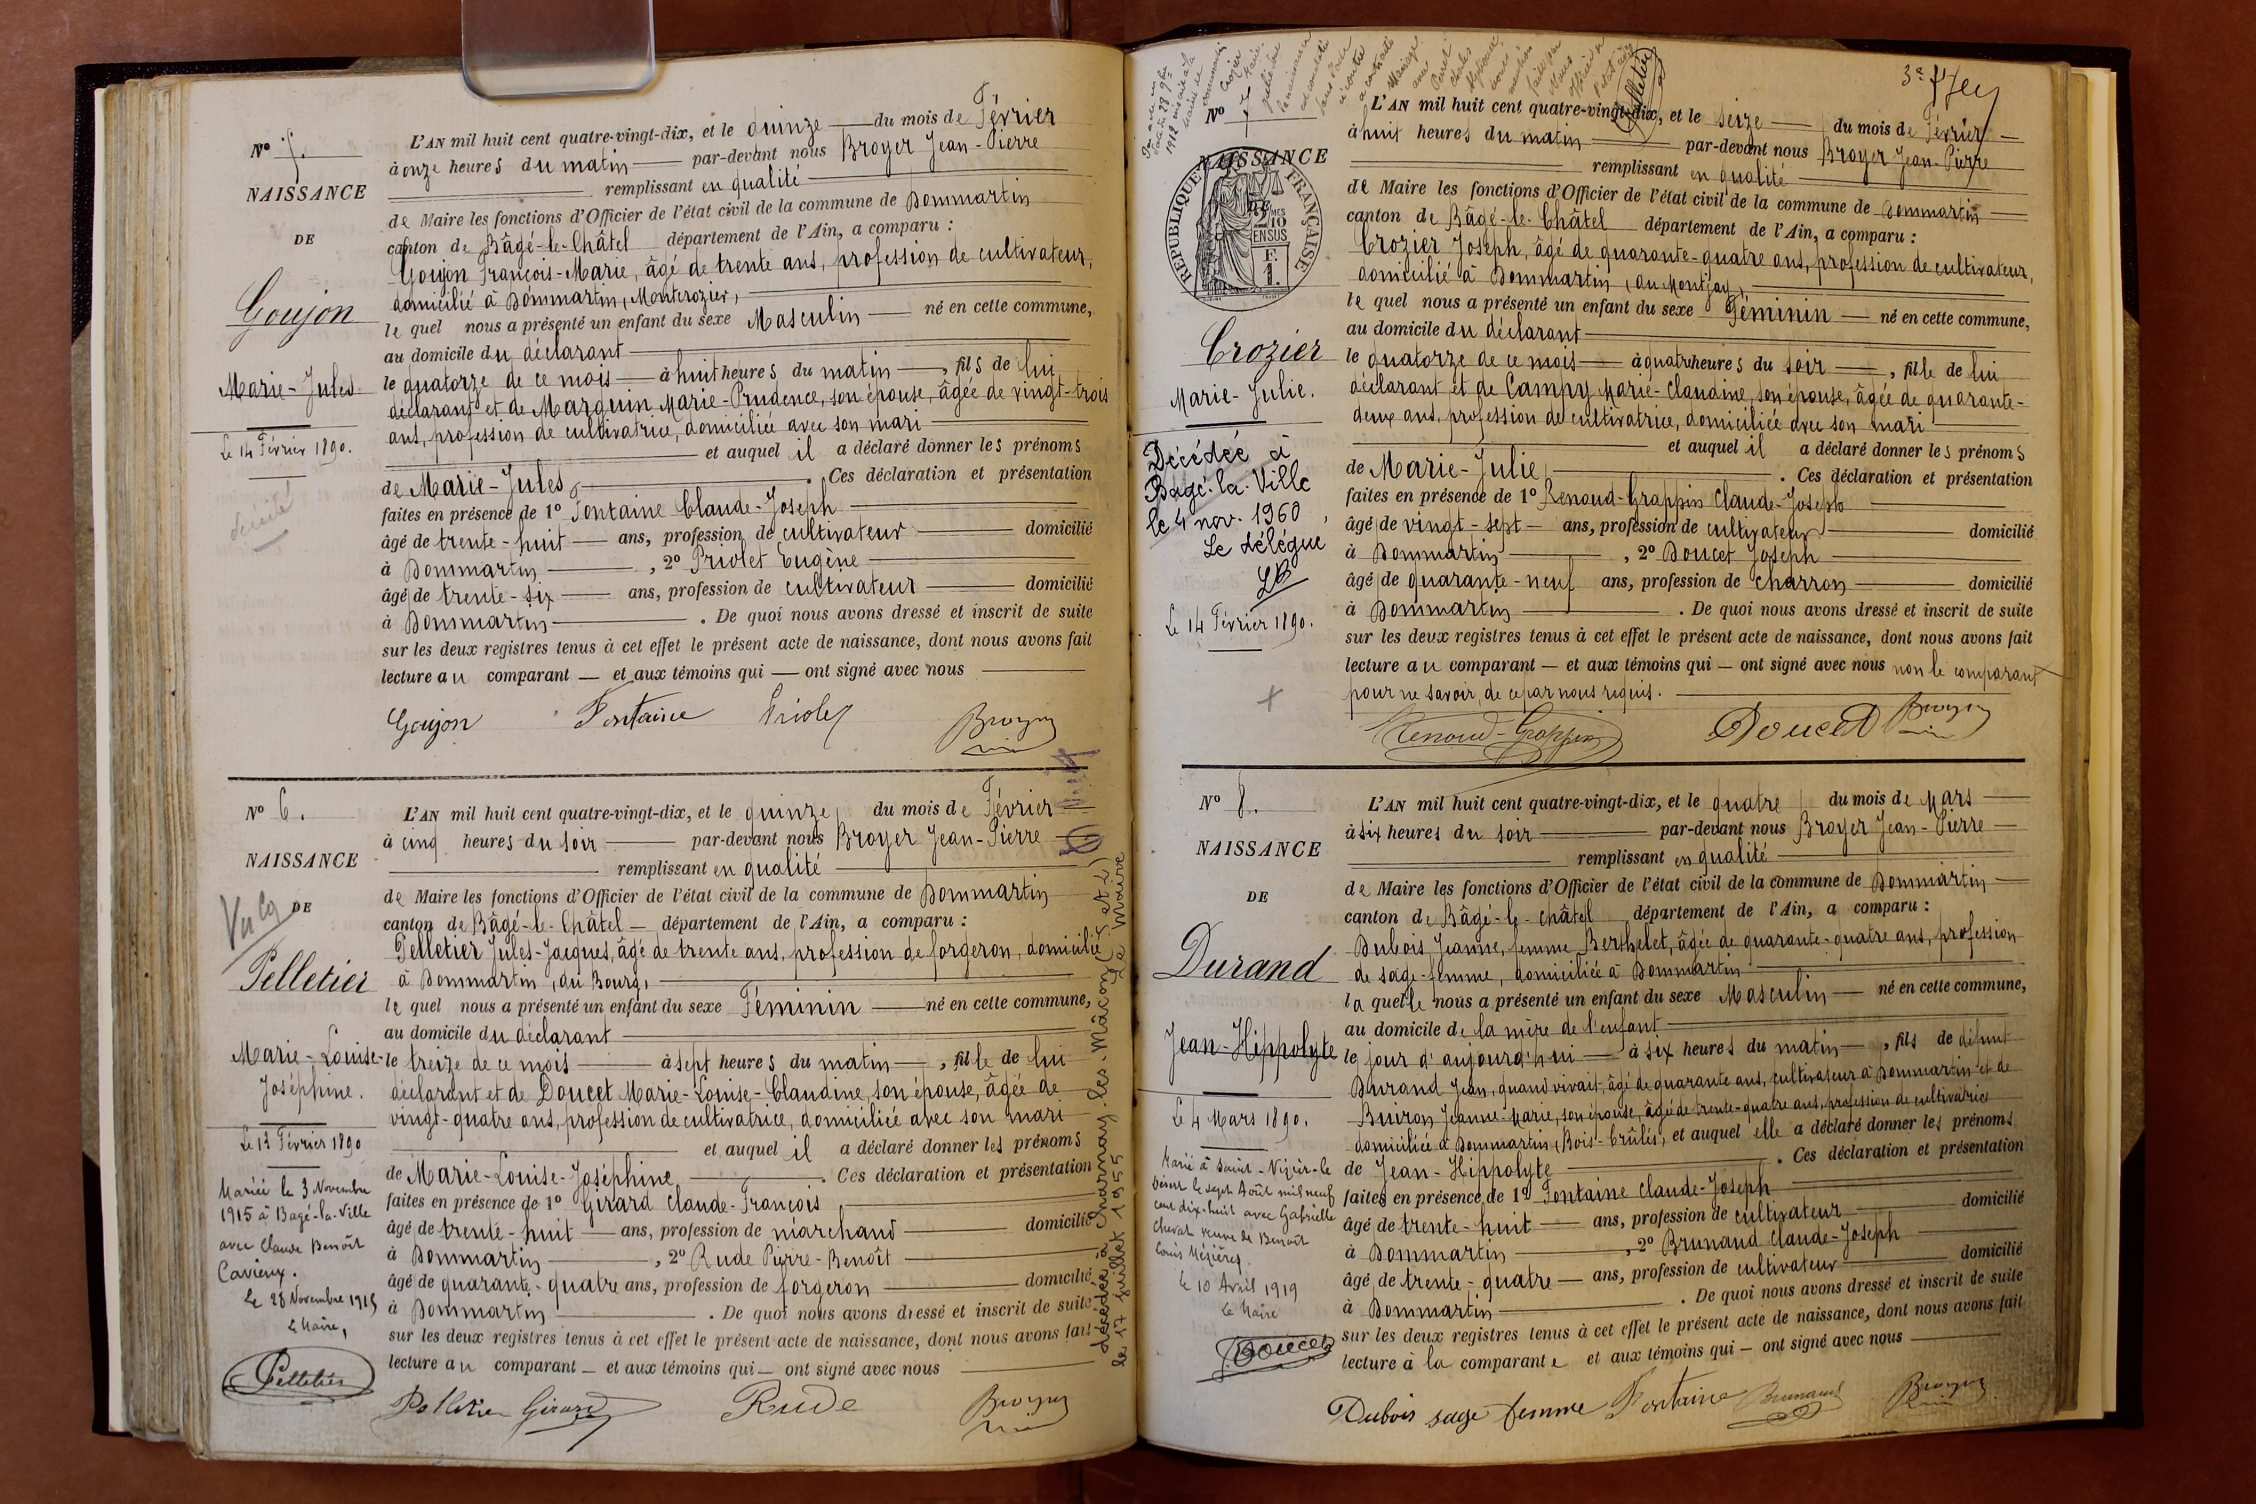 N° 5.
NAISSANCE
DE
Goujon
Marie-Jules
Le 14 Février 1890.
décédé
L'AN mil huit cent quatre-vingt-dix, et le quinze du mois de Février
à onze heures du matin par-devant nous Broyer Jean-Pierre
remplissant en qualité
de Maire les fonctions d'Officier de l'état civil de la commune de Dommartin
canton de Bâgé-le-Châtel département de l'Ain, a comparu :
Goujon François-Marie, âgé de trente ans, profession de cultivateur,
domicilié à Dommartin, Montcrozier,
le quel nous a présenté un enfant du sexe Masculin né en cette commune,
au domicile du déclarant
le quatorze de ce mois à huit heures du matin, fils de lui
déclarant et de Marguin Marie-Prudence, son épouse, âgée de vingt-trois
ans, profession de cultivatrice, domiciliée avec son mari
et auquel il a déclaré donner les prénoms
de Marie-Jules. Ces déclaration et présentation
faites en présence de 1° Fontaine Claude-Joseph
âgé de trente-huit ans, profession de cultivateur domicilié
à Dommartin, 2° Priolet Eugène
âgé de trente-six ans, profession de cultivateur domicilié
à Dommartin. De quoi nous avons dressé et inscrit de suite
sur les deux registres tenus à cet effet le présent acte de naissance, dont nous avons fait
lecture au comparant et aux témoins qui ont signé avec nous
Goujon Fontaine Priolet Broyer
N° 6.
NAISSANCE
DE
Pelletier
Marie-Louise-
Joséphine.
Le 13 Février 1890
Mariée le 3 Novembre
1915 à Bagé-la-Ville
avec Claude Benoît
Cavieux.
Le 28 Novembre 1915
Le Maire,
Pelletier
L'AN mil huit cent quatre-vingt-dix, et le quinze du mois de Février
à cinq heures du soir par-devant nous Broyer Jean-Pierre
remplissant en qualité
de Maire les fonctions d'Officier de l'état civil de la commune de Dommartin
canton de Bâgé-le-Châtel département de l'Ain, a comparu :
Pelletier Jules-Jacques, âgé de trente ans, profession de forgeron, domicilié
à Dommartin, au Bourg,
le quel nous a présenté un enfant du sexe Féminin né en cette commune,
au domicile du déclarant
le treize de ce mois à sept heures du matin, fille de lui
déclarant et de Doucet Marie-Louise-Claudine, son épouse, âgée de
vingt-quatre ans, profession de cultivatrice, domiciliée avec son mari
et auquel il a déclaré donner les prénoms
de Marie-Louise-Joséphine. Ces déclaration et présentation
faites en présence de 1° Girard Claude-François
âgé de trente-huit ans, profession de marchand domicilié
à Dommartin, 2° Rude Pierre-Benoît
âgé de quarante-quatre ans, profession de forgeron domicilié
à Dommartin. De quoi nous avons dressé et inscrit de suite
sur les deux registres tenus à cet effet le présent acte de naissance, dont nous avons fait
lecture au comparant et aux témoins qui ont signé avec nous
Pelletier Girard Rude Broyer
décédée à Charnay-les-Mâcon (S et L)
le 17 juillet 1955 Le Maire
N° 7
NAISSANCE
RÉPUBLIQUE FRANÇAISE
2 DMES
10
EN SUS
F.
1.
Crozier
Marie-Julie.
Décédée à
Bagé-la-Ville
le 4 nov. 1960,
Le délégué
Le 14 Février 1890.
Pelletier
L'AN mil huit cent quatre-vingt-dix, et le seize du mois de Février
à huit heures du matin par-devant nous Broyer Jean-Pierre
remplissant en qualité
de Maire les fonctions d'Officier de l'état civil de la commune de Dommartin
canton de Bâgé-le-Châtel département de l'Ain, a comparu :
Crozier Joseph, âgé de quarante-quatre ans, profession de cultivateur,
domicilié à Dommartin, au Montjay,
le quel nous a présenté un enfant du sexe Féminin né en cette commune,
au domicile du déclarant
le quatorze de ce mois à quatre heures du soir, fille de lui
déclarant et de Campy Marie-Claudine, son épouse, âgée de quarante-
deux ans, profession de cultivatrice, domiciliée avec son mari
et auquel il a déclaré donner les prénoms
de Marie-Julie. Ces déclaration et présentation
faites en présence de 1° Renoud-Grappin Claude-Joseph
âgé de vingt-sept ans, profession de cultivateur domicilié
à Dommartin, 2° Doucet Joseph
âgé de quarante-neuf ans, profession de charron domicilié
à Dommartin. De quoi nous avons dressé et inscrit de suite
sur les deux registres tenus à cet effet le présent acte de naissance, dont nous avons fait
lecture au comparant et aux témoins qui ont signé avec nous non le comparant
pour ne savoir, de ce par nous requis.
Renoud-Grappin Doucet Broyer
N° 8.
NAISSANCE
DE
Durand
Jean-Hippolyte
Le 4 Mars 1890.
Marié à Saint-Nizier-le
Désert le sept Août mil neuf
cent dix-huit avec Gabrielle
Cheval veuve de Benoît
Louis Mézières.
Le 10 Avril 1919
Le Maire
Doucet
L'AN mil huit cent quatre-vingt-dix, et le quatre du mois de Mars
à six heures du soir par-devant nous Broyer Jean-Pierre
remplissant en qualité
de Maire les fonctions d'Officier de l'état civil de la commune de Dommartin
canton de Bâgé-le-Châtel département de l'Ain, a comparu :
Dubois Jeanne, femme Berthelet, âgée de quarante-quatre ans, profession
de sage-femme, domiciliée à Dommartin
la quelle nous a présenté un enfant du sexe Masculin né en cette commune,
au domicile de la mère de l'enfant
le jour d'aujourd'hui à six heures du matin, fils de défunt
Durand Jean, quand vivait, âgé de quarante ans, cultivateur à Dommartin et de
Buiron Jeanne-Marie, son épouse, âgée de trente-quatre ans, profession de cultivatrice
domiciliée à Dommartin, (Bois-brûlés), et auquel elle a déclaré donner les prénoms
de Jean-Hippolyte. Ces déclaration et présentation
faites en présence de 1° Fontaine Claude-Joseph
âgé de trente-huit ans, profession de cultivateur domicilié
à Dommartin, 2° Brunand Claude-Joseph
âgé de trente-quatre ans, profession de cultivateur domicilié
à Dommartin. De quoi nous avons dressé et inscrit de suite
sur les deux registres tenus à cet effet le présent acte de naissance, dont nous avons fait
lecture à la comparante et aux témoins qui ont signé avec nous
Dubois sage femme Fontaine Brunand Broyer